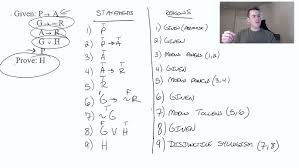 Given: P → A
A → R
G ∨ H
P
Prove: H
STATEMENTS
1) P
2) P → A
3) A
4) A → R
5) R
6) G → ~R
7) ~G
8) G ∨ H
9) H
REASONS
1) GIVEN (PREMISE)
2) GIVEN
3) MODUS PONENS (1,2)
4) GIVEN
5) MODUS PONENS (3,4)
6) GIVEN
7) MODUS TOLLENS (5,6)
8) GIVEN
9) DISJUNCTIVE SYLLOGISM (7,8)